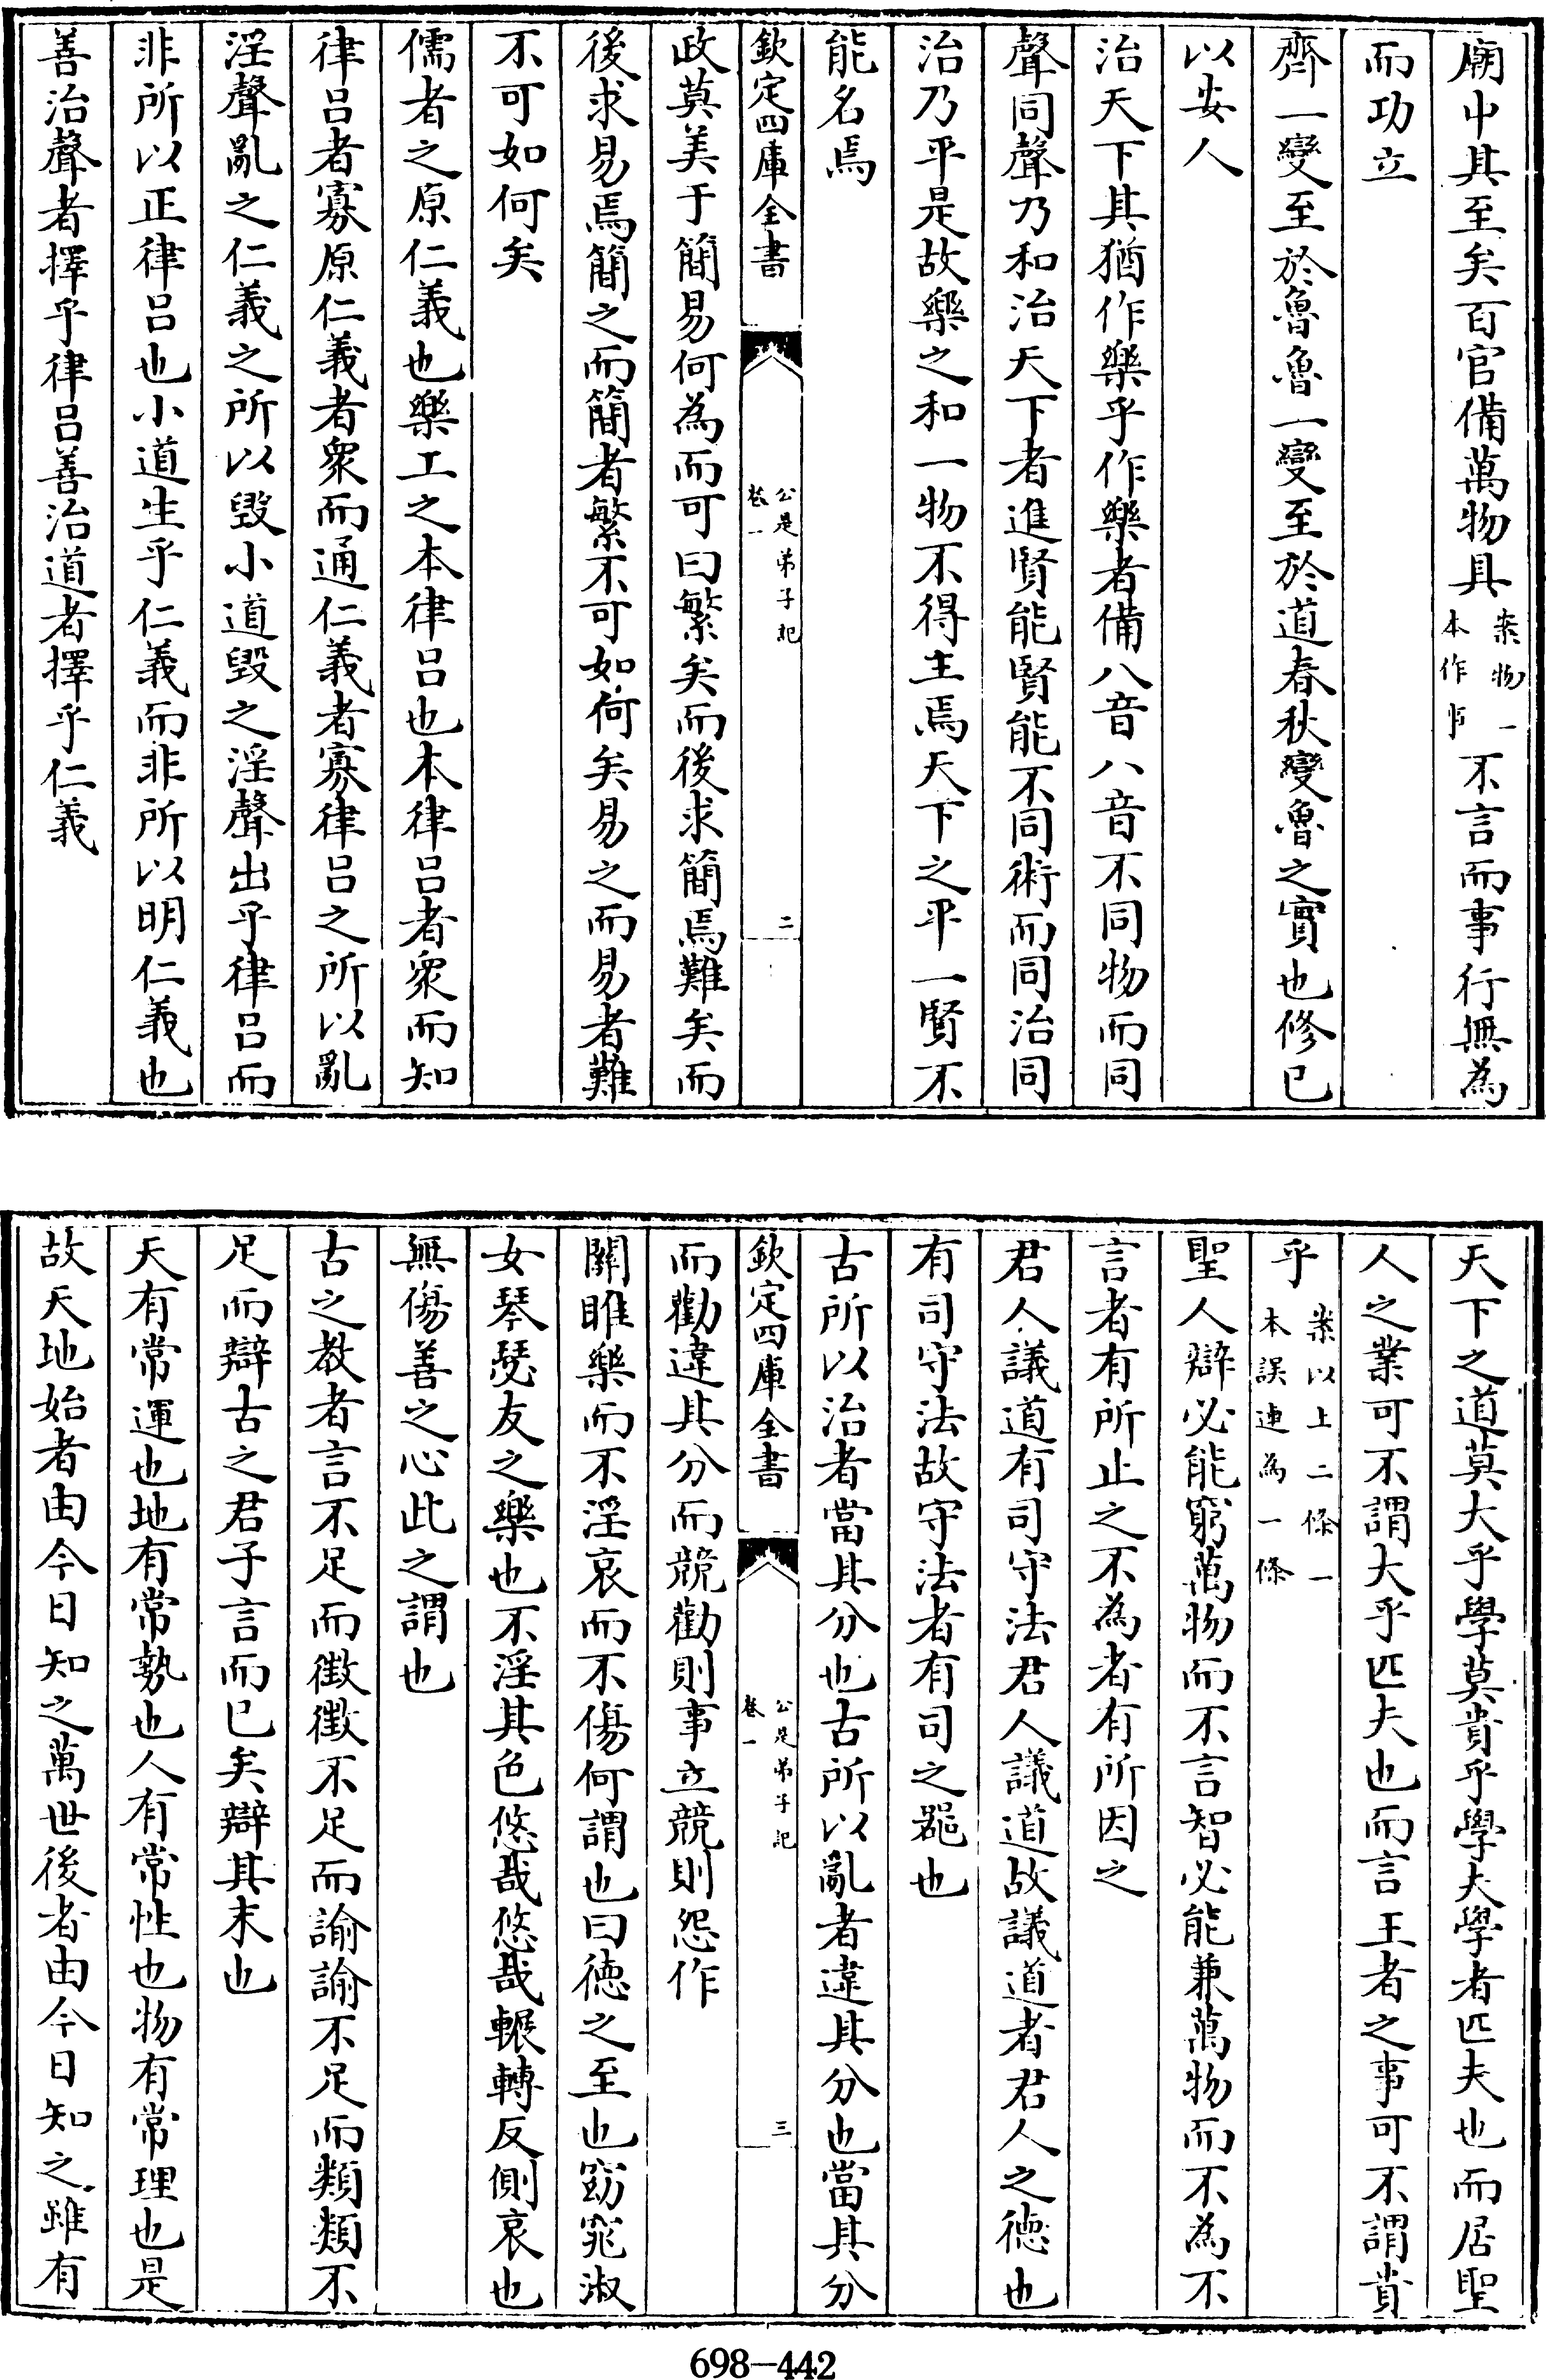 廟中其至矣百官備萬物具案物一本作事不言而事行無為
而功立
齊一變至於魯魯一變至於道春秋變魯之實也修已
以安人
治天下其猶作樂乎作樂者備八音八音不同物而同
聲同聲乃和治天下者進賢能賢能不同術而同治同
治乃平是故樂之和一物不得主焉天下之平一賢不
能名焉
欽定四庫全書
公是弟子記
卷一
二
政莫美于簡易何為而可曰繁矣而後求簡焉難矣而
後求易焉簡之而簡者繁不可如何矣易之而易者難
不可如何矣
儒者之原仁義也樂工之本律呂也本律呂者衆而知
律呂者寡原仁義者衆而通仁義者寡律呂之所以亂
淫聲亂之仁義之所以毀小道毀之淫聲出乎律呂而
非所以正律呂也小道生乎仁義而非所以明仁義也
善治聲者擇乎律呂善治道者擇乎仁義
天下之道莫大乎學莫貴乎學夫學者匹夫也而居聖
人之業可不謂大乎匹夫也而言王者之事可不謂貴
乎案以上二條一本誤連為一條
聖人辯必能窮萬物而不言智必能兼萬物而不為不
言者有所止之不為者有所因之
君人議道有司守法君人議道故議道者君人之德也
有司守法故守法者有司之器也
古所以治者當其分也古所以亂者違其分也當其分
欽定四庫全書
公是弟子記
卷一
三
而勸違其分而競勸則事立競則怨作
關雎樂而不淫哀而不傷何謂也曰德之至也窈窕淑
女琴瑟友之樂也不淫其色悠哉悠哉輾轉反側哀也
無傷善之心此之謂也
古之教者言不足而徵徵不足而諭諭不足而類類不
足而辯古之君子言而已矣辯其末也
天有常運也地有常勢也人有常性也物有常理也是
故天地始者由今日知之萬世後者由今日知之雖有
698-442